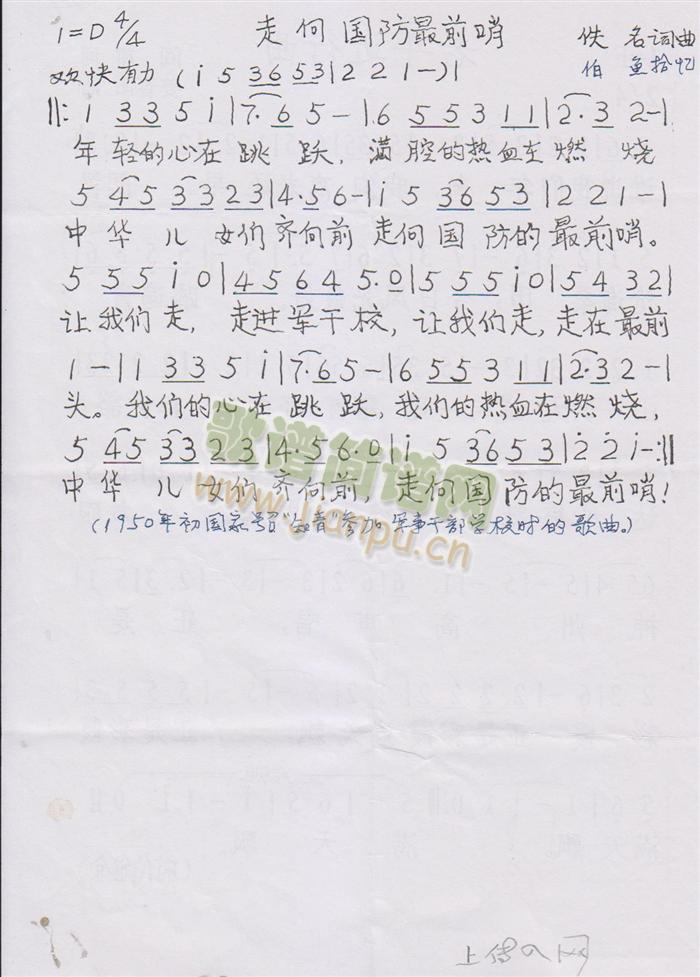 1=D 4/4 走向国防最前哨 佚名词曲
欢快有力 (i 5 36 53|2 2 1-)| 伯鱼拾忆
‖: 1 33 5 i|7·6 5 -|6 55 3 11|2·3 2-|
年轻的心在跳跃，满腔的热血在燃烧
5 45 33 23|4·5 6-|i 5 36 53|2 2 1-|
中华儿女们齐向前 走向国防的最前哨。
5 55 i 0|45 64 5·0|5 55 i 0|5 4 32|
让我们走，走进军干校，让我们走，走在最前
1-|1 33 5 i|7·6 5-|6 55 3 11|2·3 2-|
头。我们的心在跳跃，我们的热血在燃烧，
5 45 33 23|4·5 6·0|i 5 36 53|2̇ 2̇ i-:‖
中华儿女们齐向前，走向国防的最前哨！
(1950年初国家号召"知青"参加军事干部学校时的歌曲。)
歌谱简谱网
www.jianpu.cn
上传入网